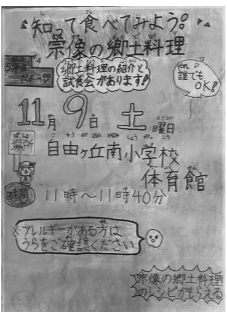 知って食べてみよう。
宗像の郷土料理
郷土料理の紹介と
試食会があります!
誰でも
OK!
11月9日 土曜日
場所
自由ヶ丘南小学校
体育館
11時～11時40分
※アレルギーがある方は
うらをご確認ください
宗像の郷土料理
のレシピがもらえる